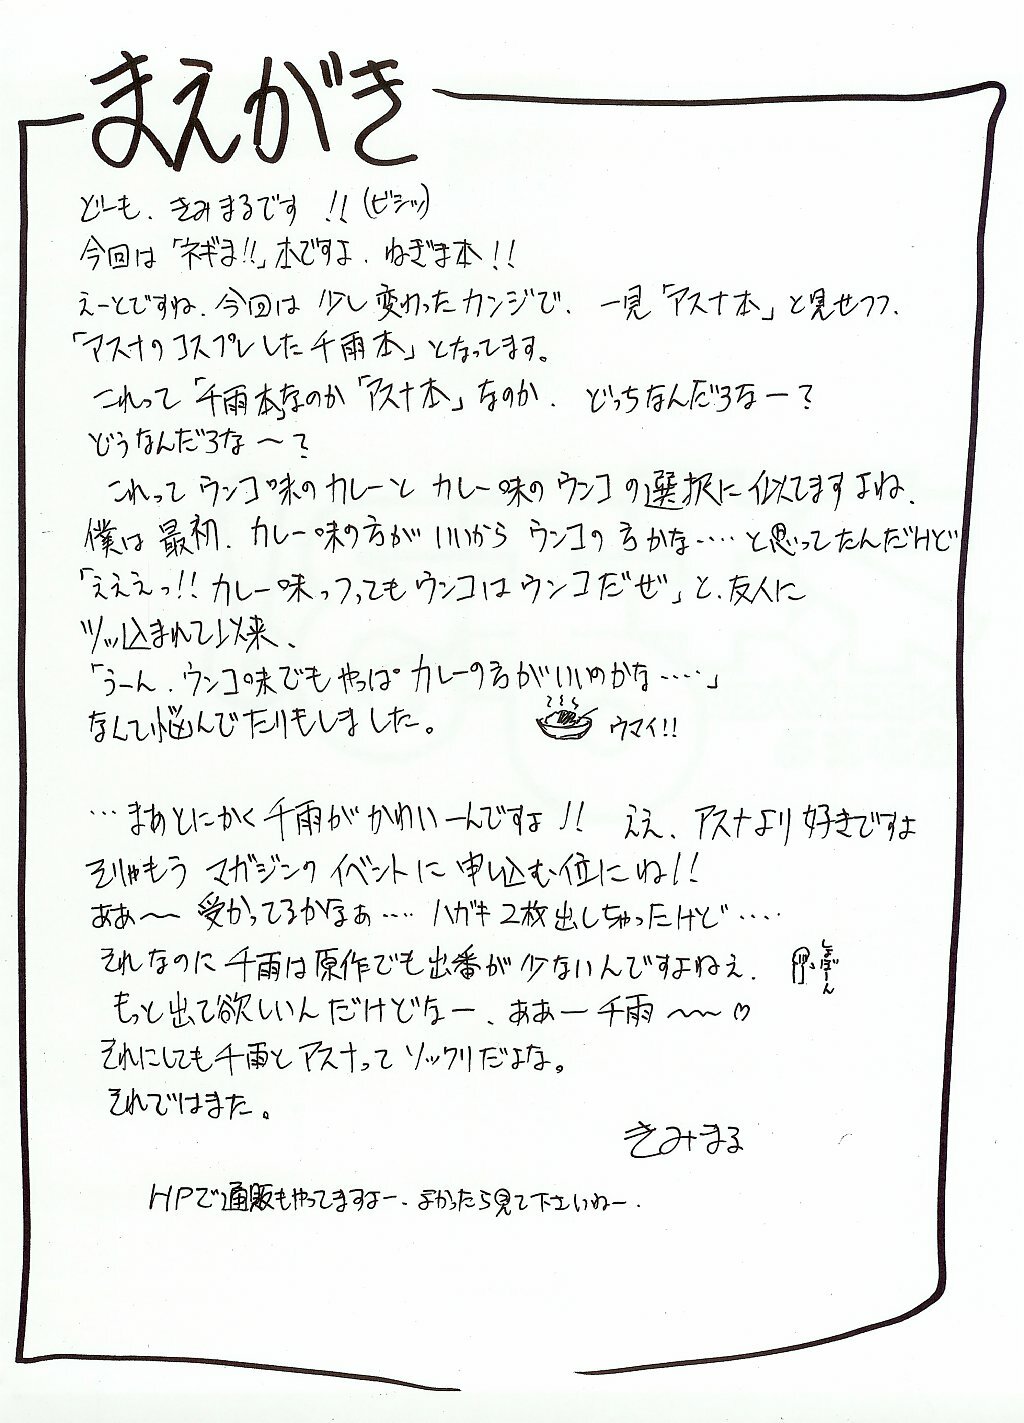 まえがき
どーも、きみまるです!!(ビシッ)
今回は「ネギま!!」本ですよ、ねぎま本!!
えーとですね、今回は少し変わったカンジで、一見「アスナ本」と見せつつ、
「アスナのコスプレした千雨本」となってます。
これって「千雨本」なのか「アスナ本」なのか、どっちなんだろなー?
どうなんだろな〜?
これってウンコ味のカレーとカレー味のウンコの選択に似てますよね、
僕は最初、カレー味の方がいいからウンコの方かな‥‥と思ってたんだけど
「えええっ!!カレー味っつってもウンコはウンコだぜ」と、友人に
ツッ込まれて以来、
「うーん、ウンコ味でもやっぱカレーの方がいいのかな‥‥」
なんて悩んでたりもしました。
ウマイ!!
…まあとにかく千雨がかわいーんですよ!! ええ、アスナより好きですよ
そりゃもうマガジンのイベントに申し込む位にね!!
ああ〜受かってるかなぁ‥‥ハガキ2枚出しちゃったけど‥‥
それなのに千雨は原作でも出番が少ないんですよねぇ、
しょぼーん
もっと出て欲しいんだけどなー、ああー千雨〜〜♡
それにしても千雨とアスナってソックリだよな。
それではまた。
きみまる
HPで通販もやってますよー、よかったら見て下さいねー、